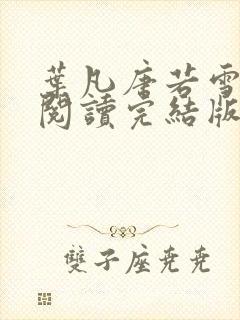 葉凡唐若雪
閱讀完結版
雙子座堯堯